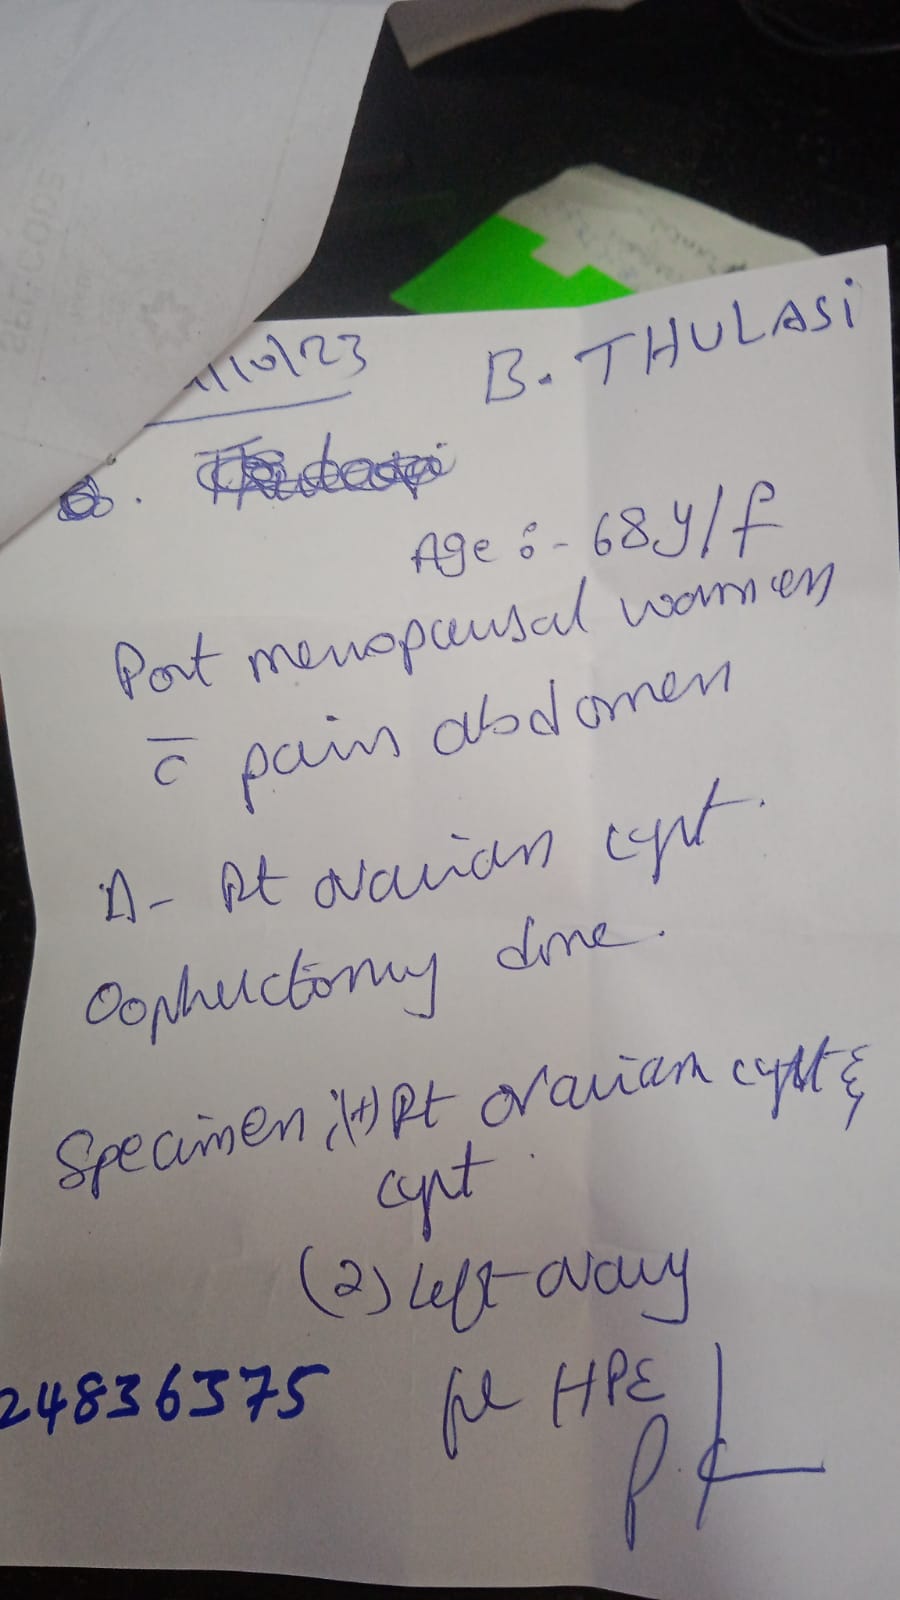 /10/23
B. THULASi
Age :- 68y/f
Post menopausal women
c̄ pain abdomen
Δ- Rt ovarian cyst.
Oophectomy done.
Specimen :(1) Rt ovarian cyst &
cyst
(2) Left ovary
for HPE
24836375